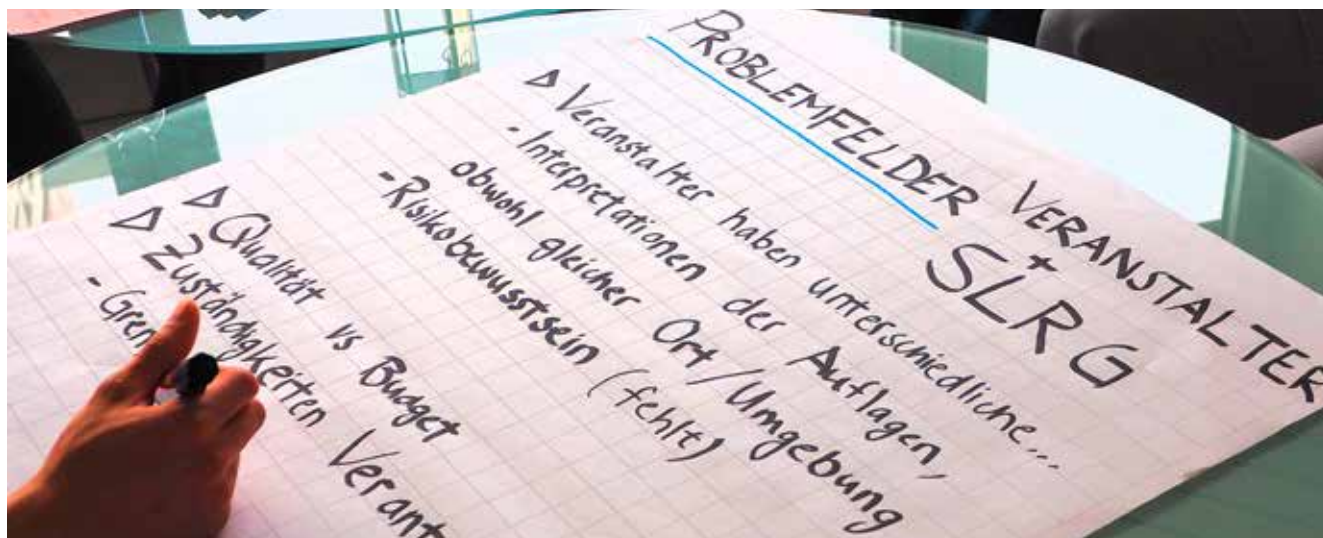 PROBLEMFELDER VERANSTALTER
+
SLRG
▷ Veranstalter haben unterschiedliche...
- Interpretationen der Auflagen,
obwohl gleicher Ort/Umgebung
- Risikobewusstsein (fehlt)
▷ Qualität vs Budget
▷ Zuständigkeiten Verant
- Gren